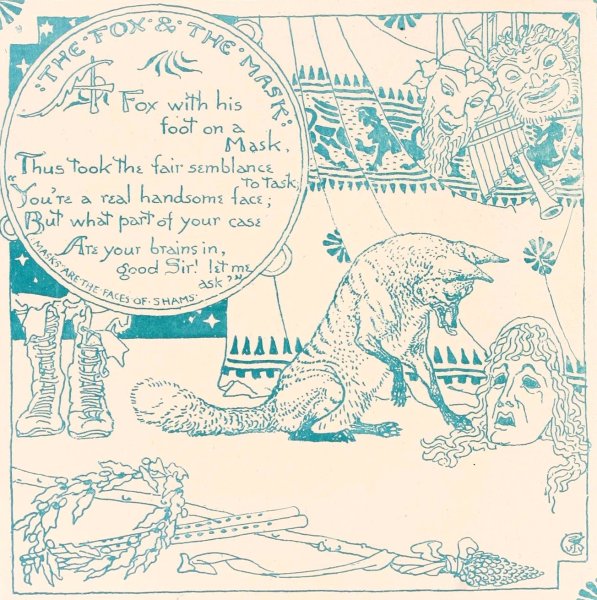 ·THE·FOX·&·THE·MASK·
A Fox with his
foot on a
Mask,
Thus took the fair semblance
to task;
"You're a real handsome face;
But what part of your case
Are your brains in,
good Sir! let me
ask?"
MASKS·ARE·THE·FACES·OF·SHAMS·